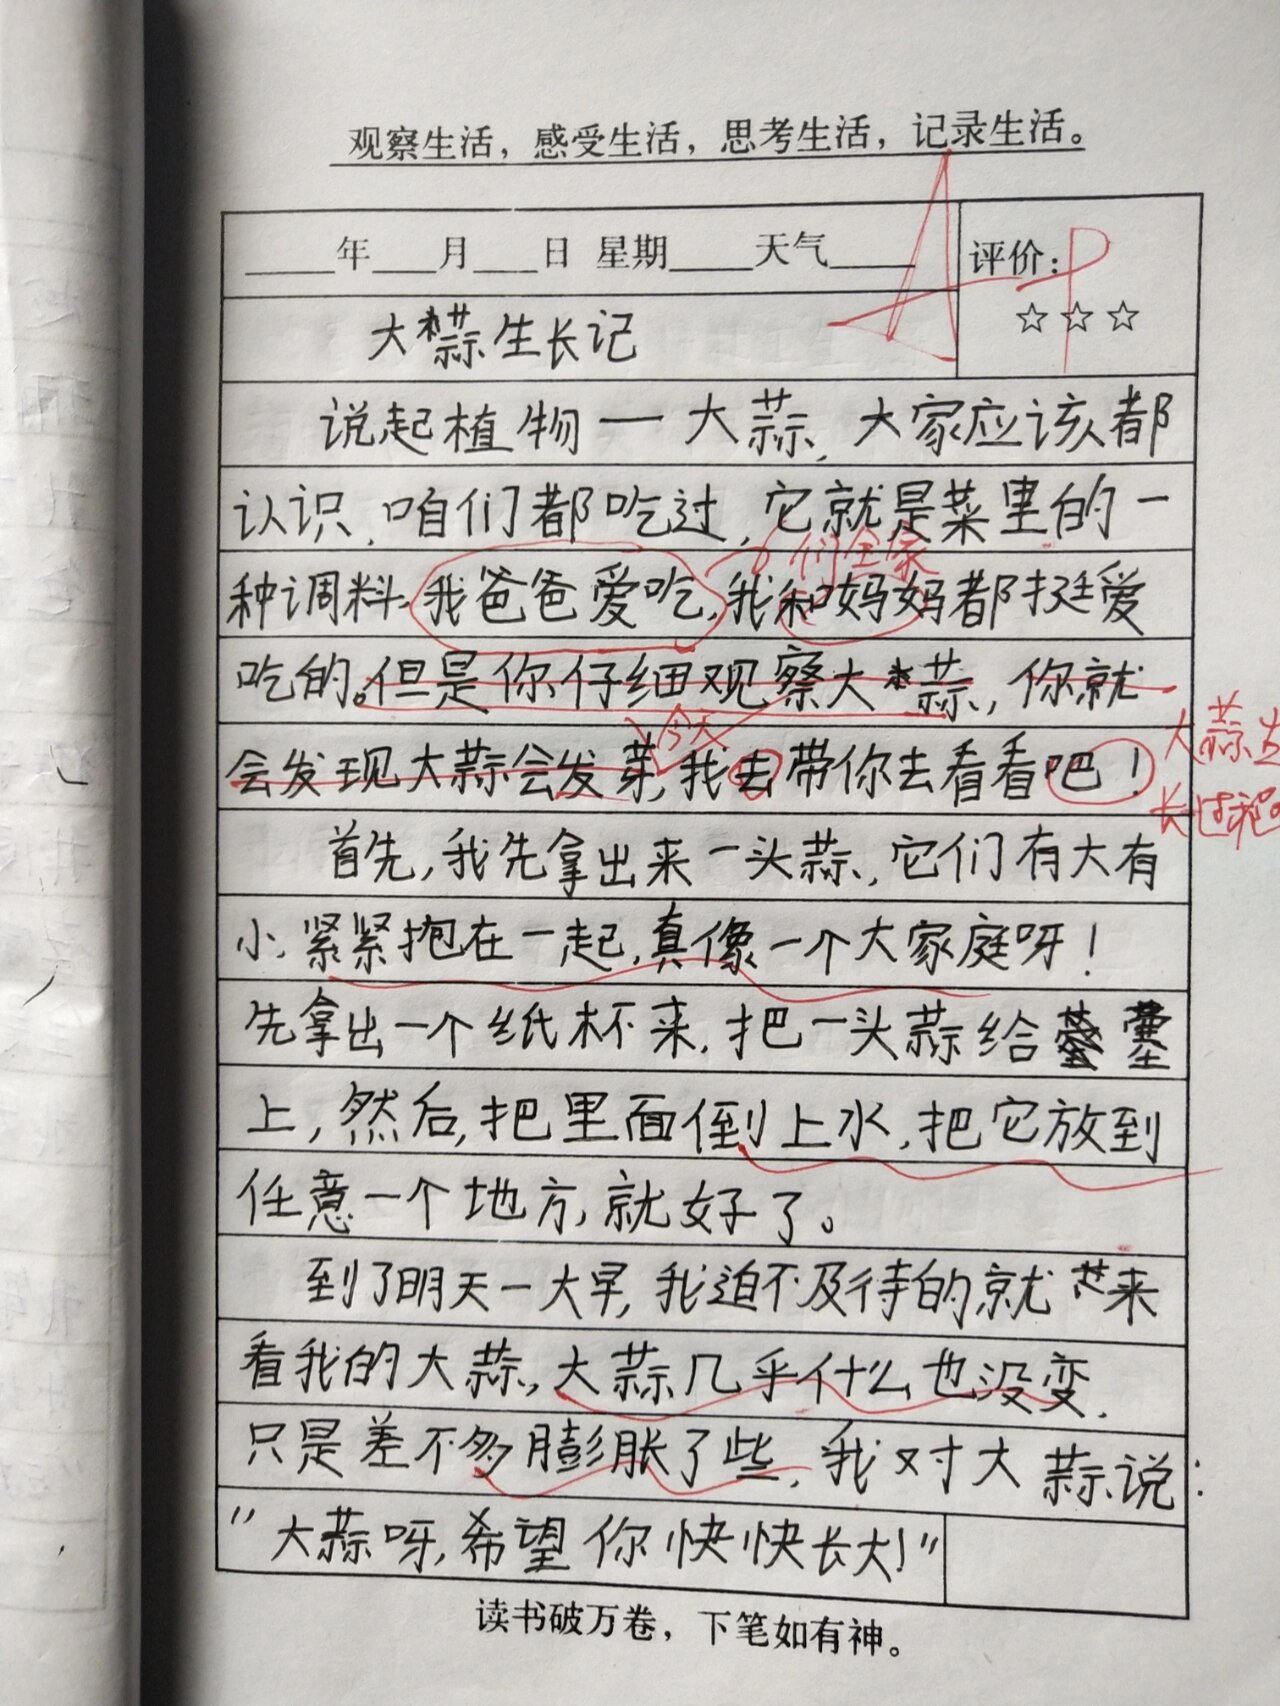 观察生活，感受生活，思考生活，记录生活。
年 月 日 星期 天气
评价：
☆☆☆
大蒜生长记
说起植物一大蒜，大家应该都
认识，咱们都吃过，它就是菜里的一
们全家
种调料，我爸爸爱吃，我和妈妈都挺爱
吃的。但是你仔细观察大蒜，你就
今天
会发现大蒜会发芽，我去带你去看看吧！
大蒜生
长过程。
首先，我先拿出来一头蒜，它们有大有
小，紧紧抱在一起，真像一个大家庭呀！
先拿出一个纸杯来，把一头蒜给
上，然后，把里面倒上水，把它放到
任意一个地方，就好了。
到了明天一大早，我迫不及待的就来
看我的大蒜，大蒜几乎什么也没变，
只是差不多膨胀了些，我对大蒜说：
“大蒜呀，希望你快快长大！”
读书破万卷，下笔如有神。